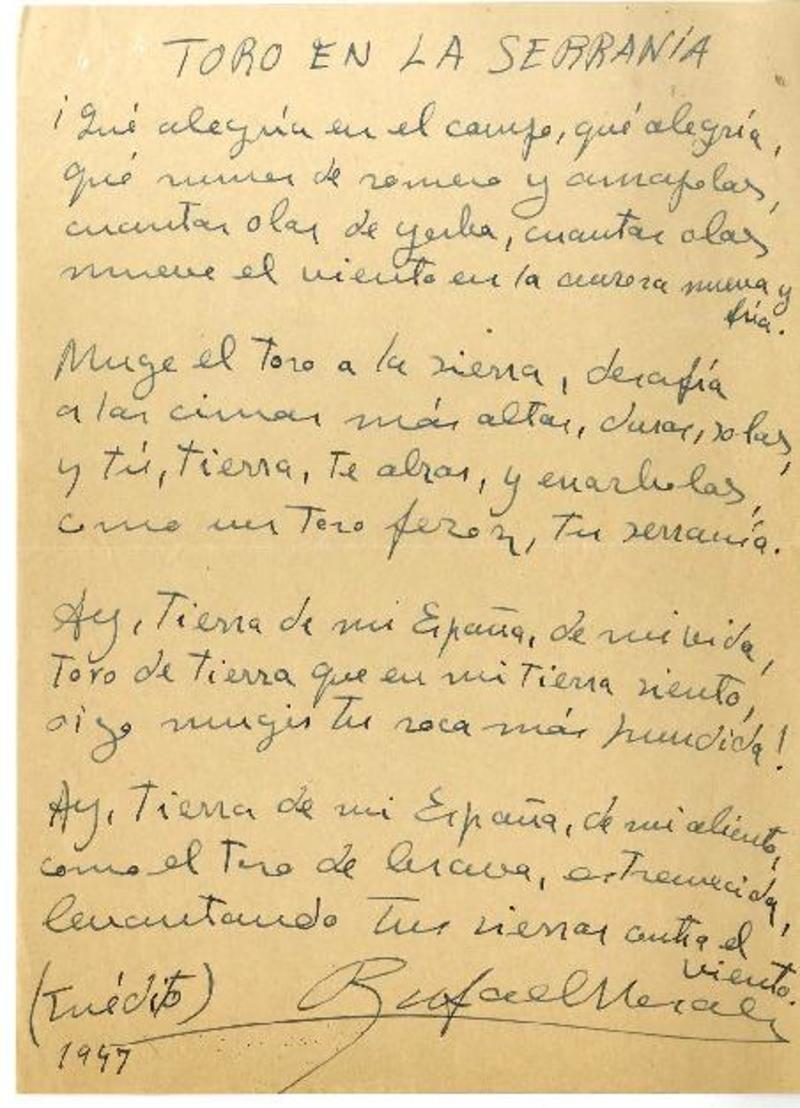 TORO EN LA SERRANÍA
¡Qué alegría en el campo, qué alegría,
qué rumor de romero y amapolas,
cuantas olas de yerba, cuantas olas
mueve el viento en la aurora nueva y
fría.
Muge el toro a la sierra, desafía
a las cimas más altas, duras, solas,
y tú, tierra, te alzas, y enarbolas,
como un toro feroz, tu serranía.
Ay, tierra de mi España, de mi vida,
toro de tierra que en mi tierra siento,
oigo mugir tu roca más hundida!
Ay, tierra de mi España, de mi aliento,
como el toro de brava, estremecida,
levantando tus sierras contra el
viento.
(Inédito) Rafael Morales
1947